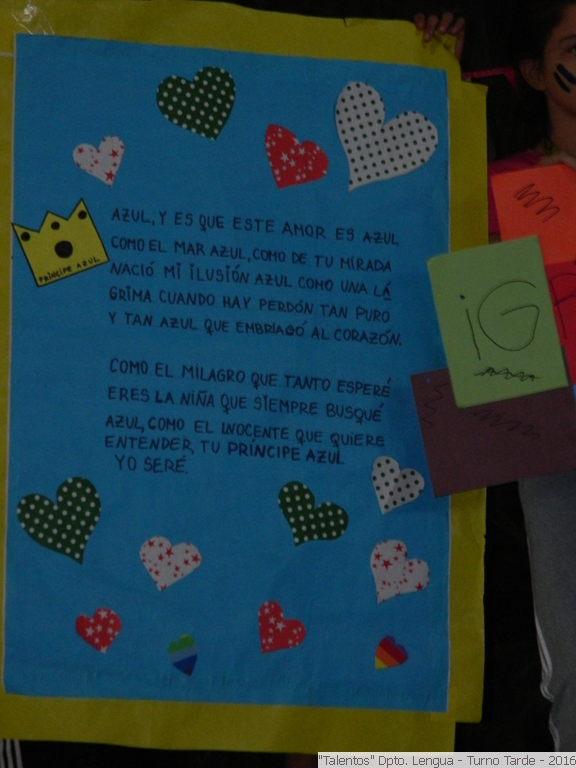 AZUL, Y ES QUE ESTE AMOR ES AZUL
COMO EL MAR AZUL, COMO DE TU MIRADA
NACIÓ MI ILUSIÓN AZUL COMO UNA LÁ
GRIMA CUANDO HAY PERDÓN TAN PURO
Y TAN AZUL QUE EMBRIAGÓ AL CORAZÓN.
PRÍNCIPE AZUL
COMO EL MILAGRO QUE TANTO ESPERÉ
ERES LA NIÑA QUE SIEMPRE BUSQUÉ
AZUL, COMO EL INOCENTE QUE QUIERE
ENTENDER, TU PRÍNCIPE AZUL
YO SERÉ.
¡G
"Talentos" Dpto. Lengua - Turno Tarde - 2016